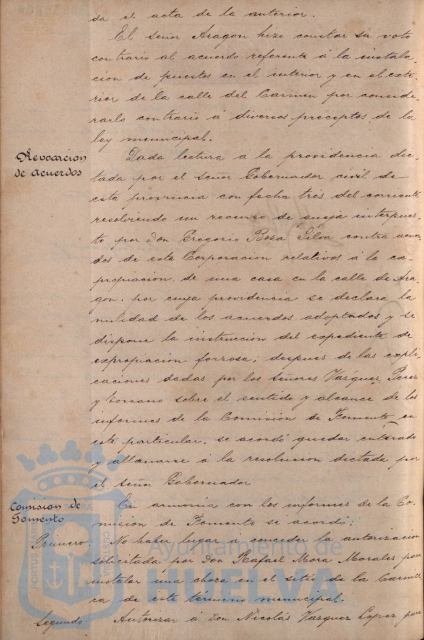 da el acta de la anterior.
El señor Aragon hizo constar su voto
contrario al acuerdo referente á la instala-
cion de puestos en el interior y en el exte-
rior de la calle del Carmen por conside-
rarlo contrario á diversos preceptos de la
ley municipal.
Revocacion de acuerdos
Dada lectura á la providencia dic-
tada por el señor Gobernador civil de
esta provincia con fecha tres del corriente
resolviendo un recurso de queja interpues-
to por Don Gregorio Rosa Silva contra acuer-
dos de esta Corporacion relativos á la ex-
propiacion de una casa en la calle de Ara-
gon, por cuya providencia se declara la
nulidad de los acuerdos adoptados y se
dispone la instruccion del expediente de
expropiacion forzosa; despues de las expli-
caciones dadas por los Señores Vazquez Perez
y Soriano sobre el sentido y alcance de los
informes de la Comision de Fomento en
este particular, se acordó quedar enterado
y allanarse á la resolucion dictada por
el Señor Gobernador
Comision de Fomento
En armonia con los informes de la Co-
mision de Fomento se acordó:
Primero
No haber lugar á conceder la autorizacion
solicitada por Don Rafael Mora Morales para
instalar una choza en el sitio de la
de este término municipal.
Segundo
Autorizar á Don Nicolás Vazquez Lopez para
Ayuntamiento de
HUELVA